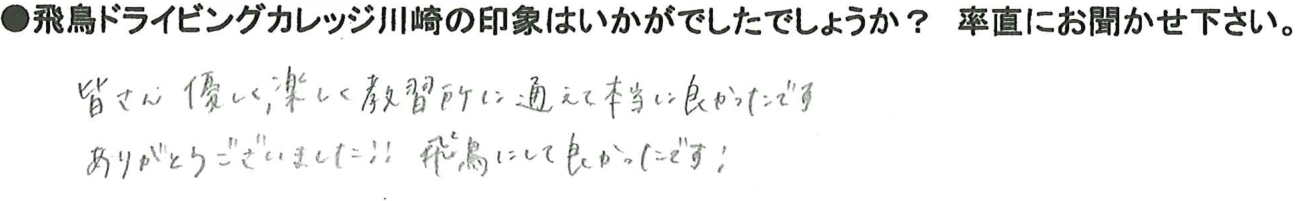 ●飛鳥ドライビングカレッジ川崎の印象はいかがでしたでしょうか？　率直にお聞かせ下さい。
皆さん優しく,楽しく教習所に通えて本当に良かったです
ありがとうございました!! 飛鳥にして良かったです!